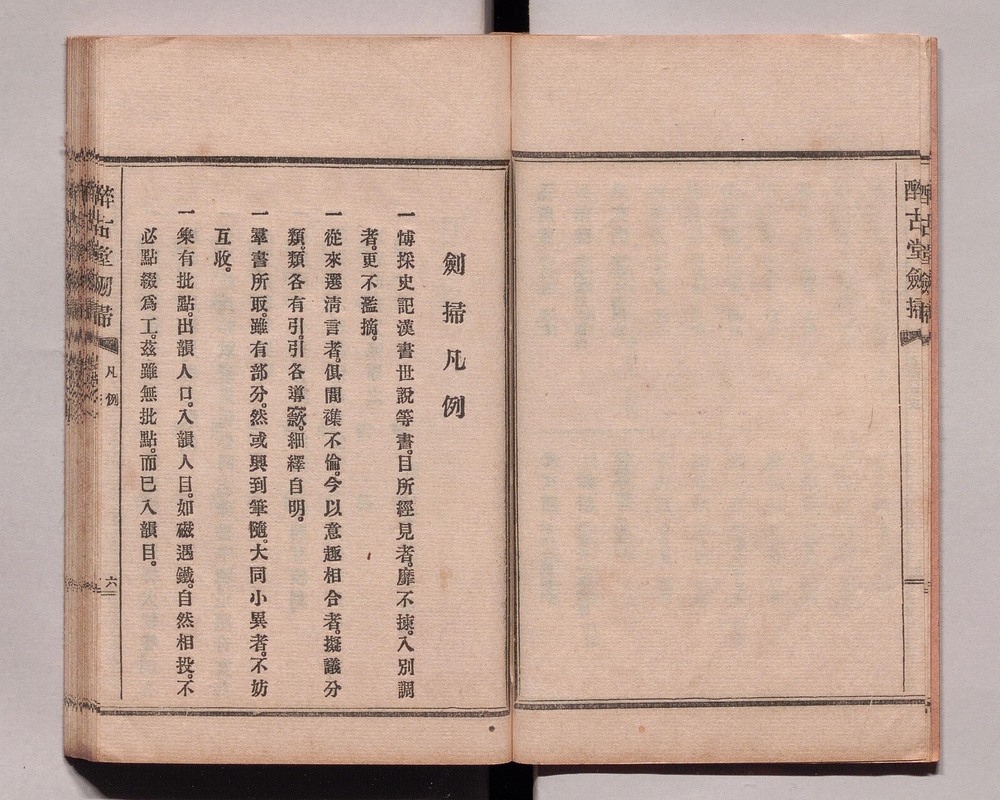 醉古堂劍掃
劍掃凡例
一博採史記漢書世說等書。目所經見者。靡不揀。入別調
者。更不濫摘。
一從來選淸言者。俱間襍不倫。今以意趣相合者。擬議分
類。類各有引。引各導窾。細繹自明。
一羣書所取。雖有部分。然或興到筆隨。大同小異者。不妨
互收。
一集有批點。出韻人口。入韻人目。如磁遇鐵。自然相投。不
必點綴爲工。茲雖無批點。而已入韻目。
醉古堂劍掃 凡例 六